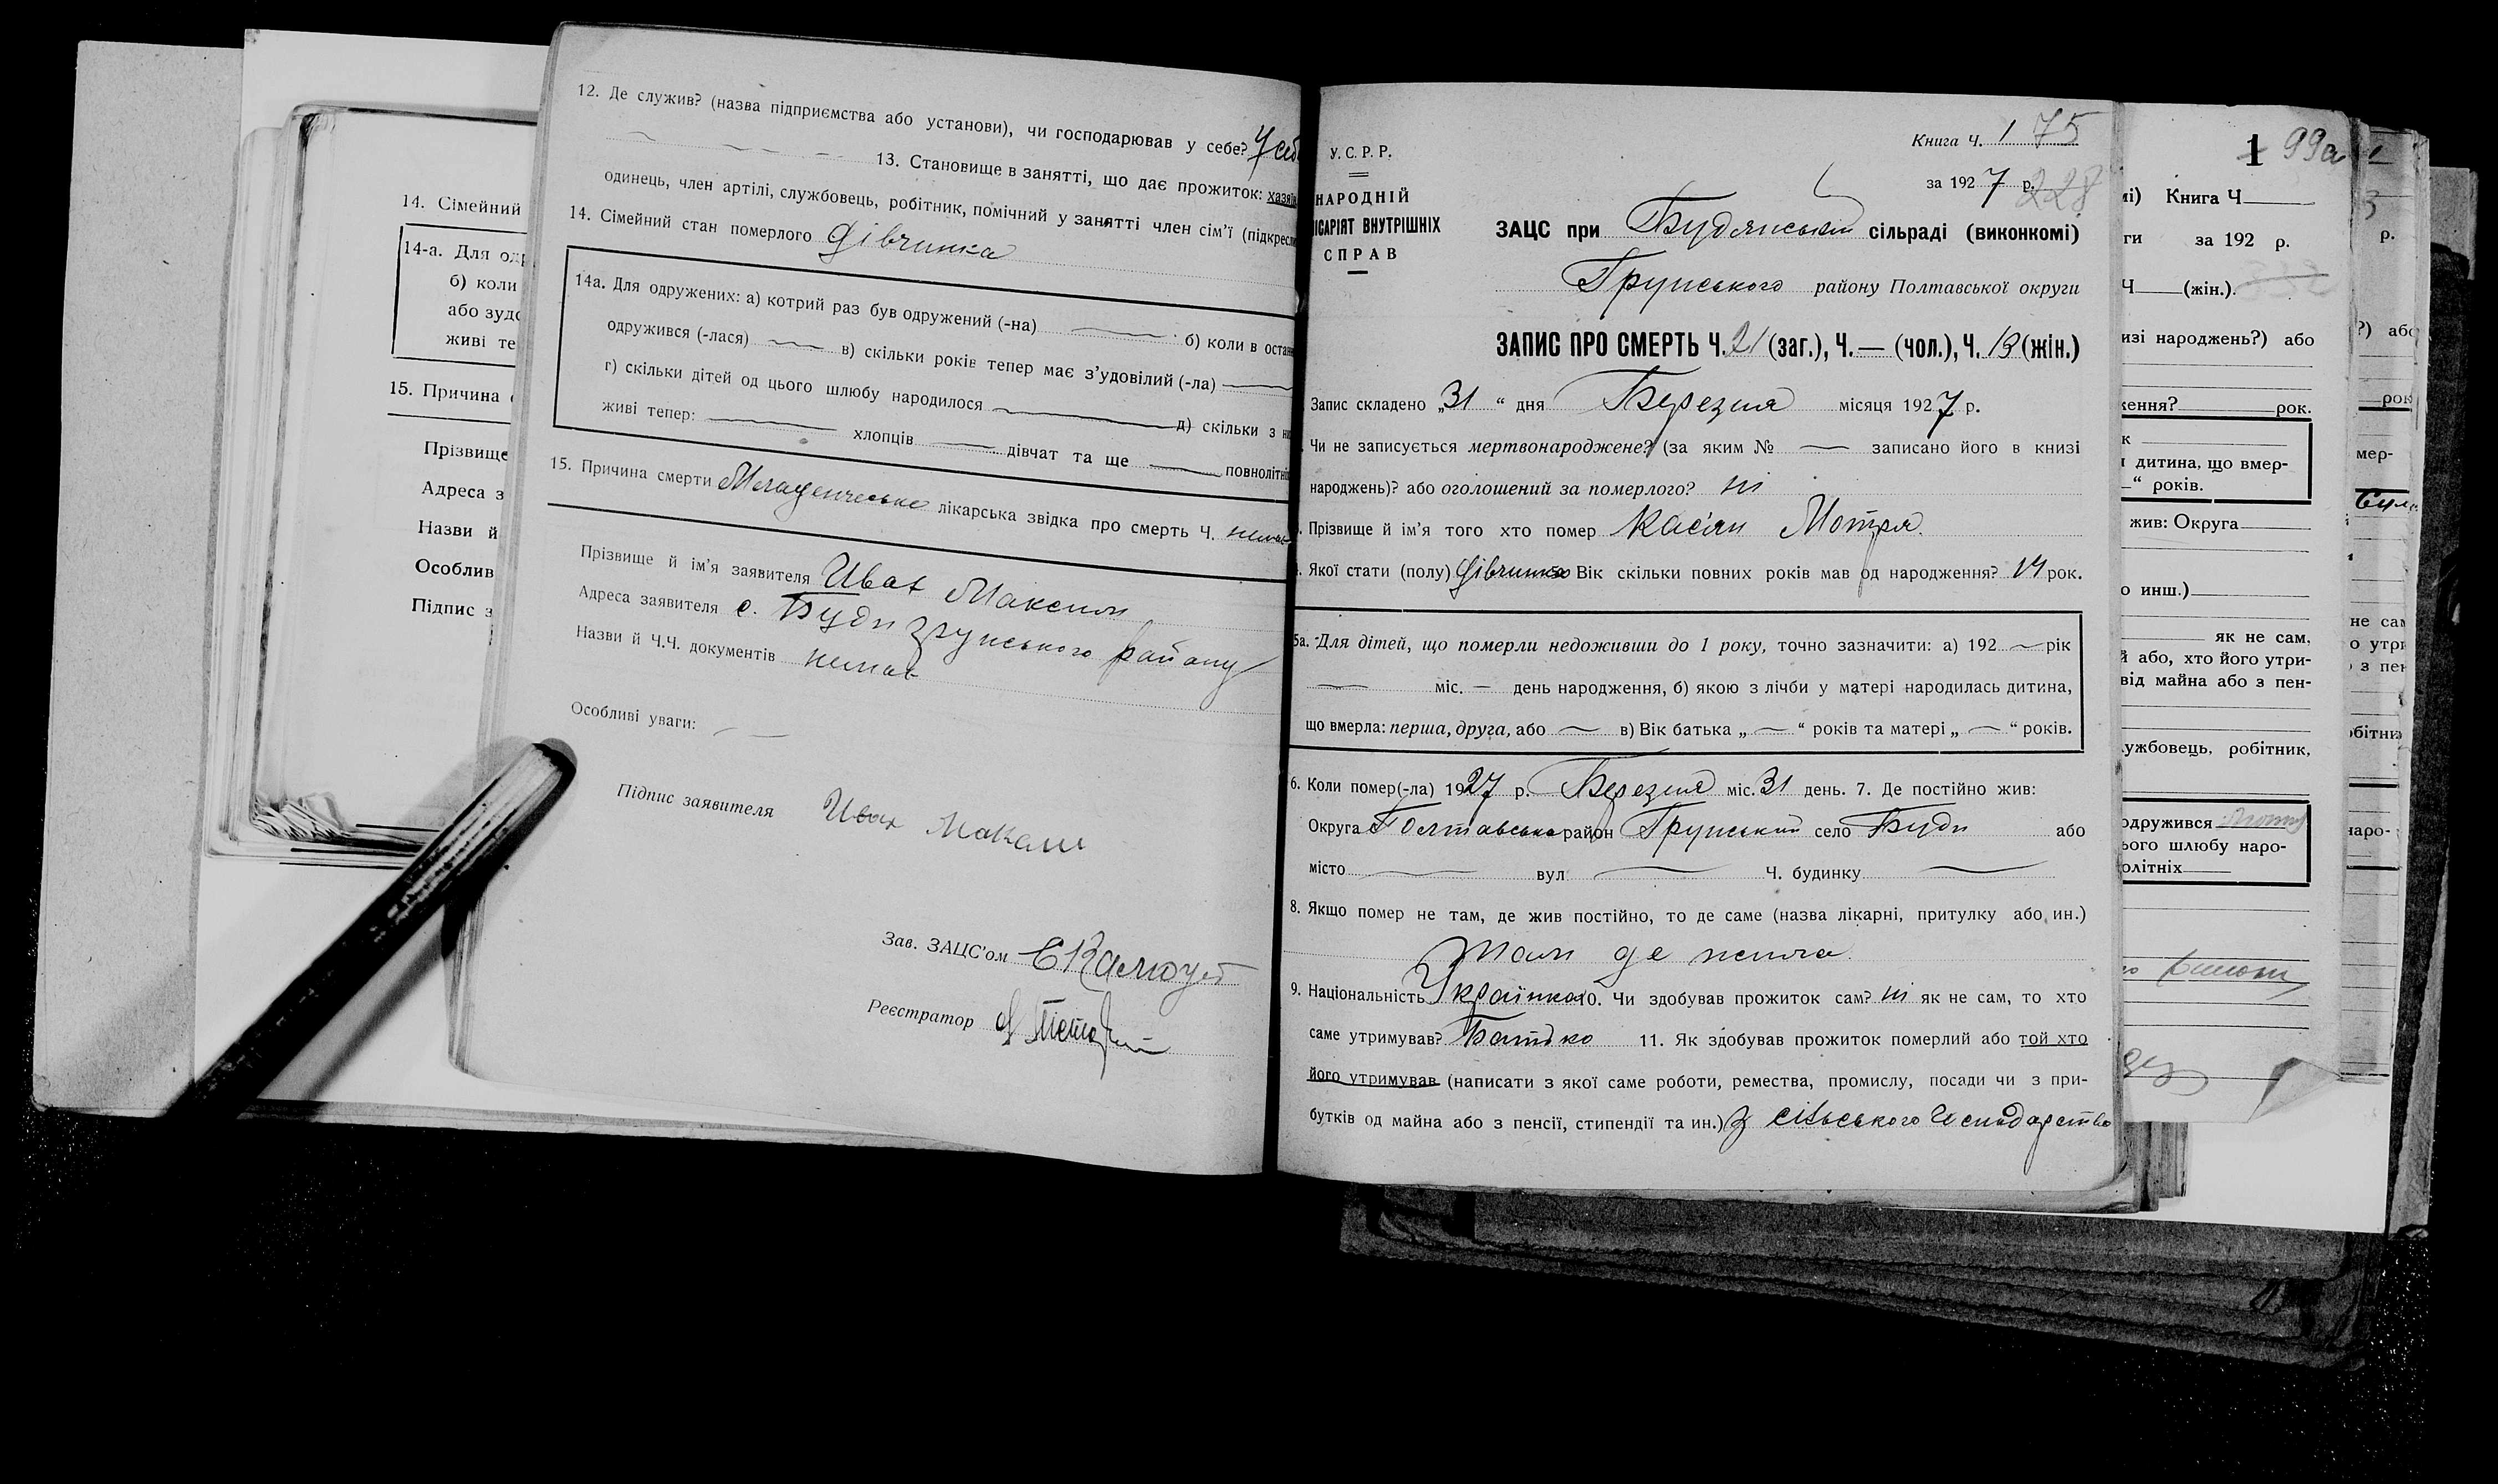 14. Сімейний
14-а. Для од
б) коли
або зудо
живі те
15. Причина
Прізвище
Адреса з
Назви й
Особлив
Підпис з
12. Де служив? (назва підприємства або установи), чи господарював у себе? У себ
13. Становище в занятті, що дає прожиток: хазяїн
одинець, член артілі, службовець, робітник, помічний у занятті член сім'ї (підкресли
14. Сімейний стан померлого дівчинка
14а. Для одружених: а) котрий раз був одружений (-на) — б) коли в остан
одружився (-лася) — в) скільки років тепер має з'удовілий (-ла) —
г) скільки дітей од цього шлюбу народилося — д) скільки з н
живі тепер: — хлопців — дівчат та ще — повнолітні
15. Причина смерти лікарська звідка про смерть Ч. немає
Прізвище й ім'я заявителя Ивах Максим
Адреса заявителя с. Буди Грунського району
Назви й Ч.Ч. документів немає
Особливі уваги: —
Підпис заявителя Ивах Максим
Зав. ЗАЦС'ом
Реєстратор
Книга Ч. 1 75
У.С.Р.Р.
за 1927 р. 228
НАРОДНІЙ
ІСАРІЯТ ВНУТРІШНІХ
СПРАВ
ЗАЦС при Будянській сільраді (виконкомі)
Грунського району Полтавської округи
ЗАПИС ПРО СМЕРТЬ Ч. 21 (заг.), Ч. — (чол.), Ч. 13 (жін.)
Запис складено „31“ дня Березня місяця 1927 р.
Чи не записується мертвонароджене? (за яким № — записано його в книзі
народжень)? або оголошений за померлого? ні
Прізвище й ім'я того хто помер Касіян Мотря.
Якої стати (полу) дівчинка Вік скільки повних років мав од народження? 14 рок.
5а. Для дітей, що померли недоживши до 1 року, точно зазначити: а) 192 — рік
— міс. — день народження, б) якою з лічби у матері народилась дитина,
що вмерла: перша, друга, або — в) Вік батька „ — “ років та матері „ — “ років.
6. Коли помер(-ла) 1927 р. Березня міс. 31 день. 7. Де постійно жив:
Округа Полтавська район Грунський село Буди або
місто — вул — Ч. будинку —
8. Якщо помер не там, де жив постійно, то де саме (назва лікарні, притулку або ин.)
там де жила.
9. Національність Українка 10. Чи здобував прожиток сам? ні як не сам, то хто
саме утримував? Батько 11. Як здобував прожиток померлий або той хто
його утримував (написати з якої саме роботи, ремества, промислу, посади чи з при-
бутків од майна або з пенсії, стипендії та ин.) З сільського господарства
1 99а
мі) Книга Ч
ги за 192 р.
Ч (жін.).
изі народжень?) або
ження? рок.
к
дитина, що вмер-
“ років.
жив: Округа
о инш.)
як не сам,
й або, хто його утри-
від майна або з пен-
ужбовець, робітник,
одружився
ього шлюбу наро-
олітніх
3
р.
?) або
рок
мер-
не сам
о утри
з пен
обітник
наро-